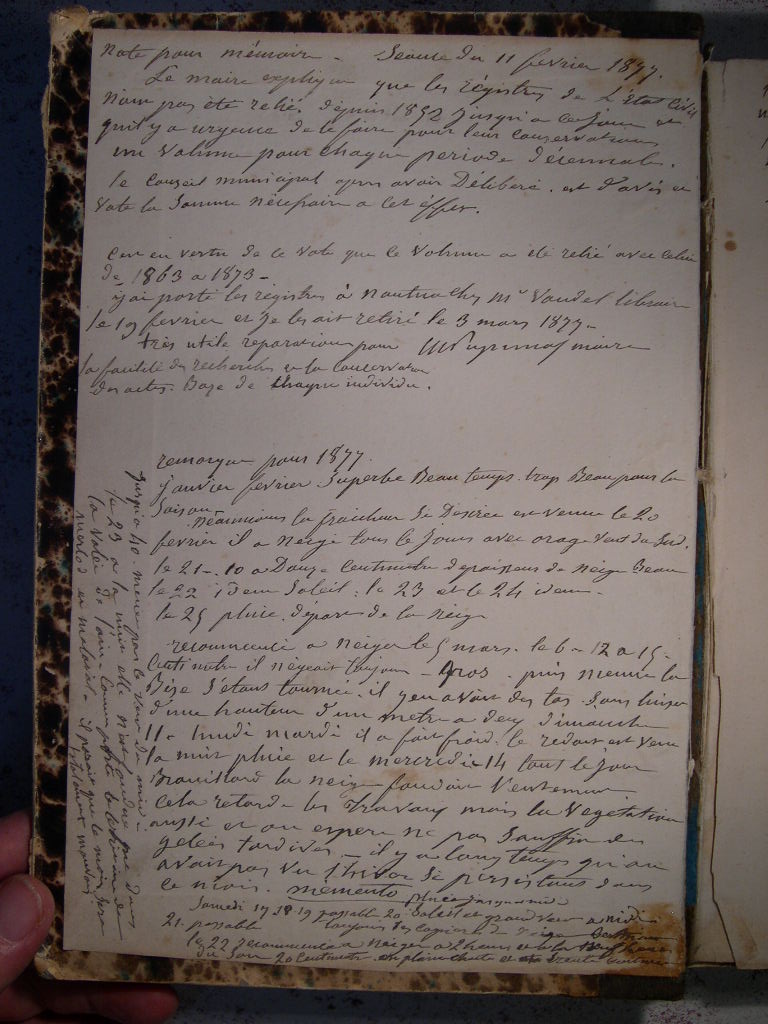 Note pour mémoire - Séance du 11 février 1877.
Le maire explique que les régistres de L'état Civil
n'ont pas été relié depuis 1852 jusqu'à ce jour et
qu'il y a urgence de le faire pour leur conservations
un volume pour chaque periode décennale.
le Conseil municipal apres avoir Déliberé. est d'avis et
Vote la Somme nécessaire a cet effet.
C'en en vertu de ce vote que ce volume a été relié avec celui
de 1863 a 1873 -
j'ai porté les régistres à nantua chez Mr Vandel libraire
le 19 fevrier et Je les ait retiré le 3 mars 1877 -
très utile reparation pour maire
la facilité des recherches et la Conservation
des actes. Baze de chaque individu.
remarque pour 1877.
janvier fevrier. Superbe Beau temps. trop Beau pour la
Saison.
Néanmoins la fraicheur Si Désirée est venue le 20
fevrier il a neigé tous le jours avec orage vent du Sud.
le 21 - 10 a Douze Centimetre d'epaisseur de neige Beau
le 22 idem Soleil : le 23 et le 24 idem.
le 25 pluie. départ de la neige
recommencé a neiger le 5 mars. le 6 - 12 a 15 -
Centimetre il négeait toujours - gros . puis meme la
Bize S'étant tournée. il y en avait des tas. Sans
d'une hauteur d'un metre a deux dimanche
11 - lundi mardi il a fait froid. le redoux est venu
la nuit pluie et le mercredi 14 tout le Jour
Brouillard la neige fondait lentement
Cela retarde les travaux mais la Vegetation
aussi et on espere ne pas Souffrir des
gelées tardives - il y a long temps qu'on
avait pas vu l'hiver Si persistant dans
ce mois. memento pluie jusqu'a midi
Samedi 17 18 19 passable 20 Soleil et grand vent a midi
21. passable toujours de neige
le 22 recommencé a neiger a 2 heures et
du Soir 20 Centimetre en plaine et trente
jusqu'a 40. meme par le vent du midi -
le 23 a la nuit elle n'est fondue que dans
la Valée de l'ain -